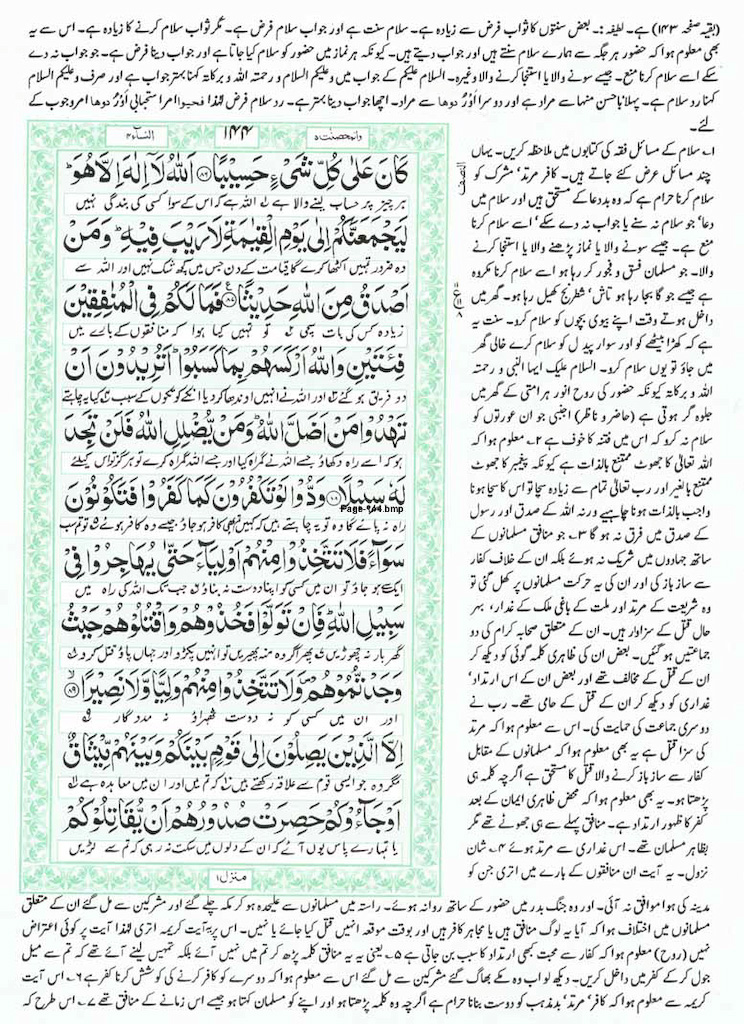 (بقیہ صفحہ ۱۴۳) ہے۔ لطیفہ :۔ بعض سنتوں کا ثواب فرض سے زیادہ ہے۔ سلام سنت ہے اور جواب سلام فرض ہے۔ مگر ثواب سلام کرنے کا زیادہ ہے۔ اس سے یہ
بھی معلوم ہوا کہ حضور ہر جگہ سے ہمارے سلام سنتے ہیں اور جواب دیتے ہیں۔ کیونکہ ہر نماز میں حضور کو سلام کیا جاتا ہے اور جواب دینا فرض ہے۔ جو جواب نہ دے
سکے اسے سلام کرنا منع۔ جیسے سونے والا یا استنجا کرنے والا وغیرہ۔ السلام علیکم کے جواب میں وعلیکم السلام و رحمتہ اللہ و برکاتہ کہنا بہتر جواب ہے اور صرف وعلیکم السلام
کہنا رد سلام ہے۔ پہلا باحسن منہا سے مراد ہے اور دوسرا اَوْ رُدُّوْھا سے مراد۔ اچھا جواب دینا بہتر ہے۔ رد سلام فرض لہٰذا فحیوا امر استحبابی اَوْ رُدُّوْھا امر وجوب کے
لئے۔
والمحصنت ۵
۱۴۴
النساء ۴
كَانَ عَلٰى كُلِّ شَىْءٍ حَسِيْبًا ۸۶ اَللّٰهُ لَاۤ اِلٰهَ اِلَّا هُوَ ؕ
ہر چیز پر حساب لینے والا ہے اللہ ہے کہ اس کے سوا کسی کی بندگی نہیں
لَيَجْمَعَنَّكُمْ اِلٰى يَوْمِ الْقِيٰمَةِ لَا رَيْبَ فِيْهِ ؕ وَمَنْ
وہ ضرور تمہیں اکٹھا کرے گا قیامت کے دن جس میں کچھ شک نہیں اور اللہ سے
اَصْدَقُ مِنَ اللّٰهِ حَدِيْثًا ۸۷ فَمَا لَكُمْ فِى الْمُنٰفِقِيْنَ
زیادہ کس کی بات سچی ۲ تو تمہیں کیا ہوا کہ منافقوں کے بارے میں
فِئَتَيْنِ وَاللّٰهُ اَرْكَسَهُمْ بِمَا كَسَبُوْا ؕ اَتُرِيْدُوْنَ اَنْ
دو فریق ہو گئے اور اللہ نے انہیں اوندھا کر دیا انکے کوتکوں کے سبب کیا یہ چاہتے
تَهْدُوْا مَنْ اَضَلَّ اللّٰهُ ؕ وَمَنْ يُّضْلِلِ اللّٰهُ فَلَنْ تَجِدَ
ہو کہ اسے راہ دکھاؤ جسے اللہ نے گمراہ کیا اور جسے اللہ گمراہ کرے تو ہرگز تو اس کیلئے
لَهٗ سَبِيْلًا ۸۸ وَدُّوْا لَوْ تَكْفُرُوْنَ كَمَا كَفَرُوْا فَتَكُوْنُوْنَ
Page-144.bmp
راہ نہ پائے گا وہ تو یہ چاہتے ہیں کہ کہیں تم بھی کافر ہو جاؤ جیسے وہ کافر ہوئے تو تم سب
سَوَآءً فَلَا تَتَّخِذُوْا مِنْهُمْ اَوْلِيَآءَ حَتّٰى يُهَاجِرُوْا فِىْ
ایک سے ہو جاؤ تو ان میں کسی کو اپنا دوست نہ بناؤ جب تک اللہ کی راہ میں
سَبِيْلِ اللّٰهِ ؕ فَاِنْ تَوَلَّوْا فَخُذُوْهُمْ وَاقْتُلُوْهُمْ حَيْثُ
گھر بار نہ چھوڑیں پھر اگر وہ منہ پھیریں تو انہیں پکڑو اور جہاں پاؤ قتل کرو
وَجَدْتُّمُوْهُمْ ۪ وَلَا تَتَّخِذُوْا مِنْهُمْ وَلِيًّا وَّلَا نَصِيْرًا ۸۹
اور ان میں کسی کو نہ دوست ٹھہراؤ نہ مددگار
اِلَّا الَّذِيْنَ يَصِلُوْنَ اِلٰى قَوْمٍ بَيْنَكُمْ وَبَيْنَهُمْ مِّيْثَاقٌ
مگر وہ جو ایسی قوم سے علاقہ رکھتے ہیں کہ تم میں اور ان میں معاہدہ ہے
اَوْ جَآءُوْكُمْ حَصِرَتْ صُدُوْرُهُمْ اَنْ يُّقَاتِلُوْكُمْ
یا تمہارے پاس یوں آئے کہ ان کے دلوں میں سکت نہ رہی کہ تم سے لڑیں
منزل ۱
النصف
۱؎ سلام کے مسائل فقہ کی کتابوں میں ملاحظہ کریں۔ یہاں
چند مسائل عرض کئے جاتے ہیں۔ کافر مرتد' مشرک کو
سلام کرنا حرام ہے کہ وہ بددعا کے مستحق ہیں اور سلام میں
دعا' جو سلام نہ سنے یا جواب نہ دے سکے' اسے سلام کرنا
منع ہے۔ جیسے سونے والا یا نماز پڑھنے والا یا استنجا کرنے
والا۔ جو مسلمان فسق و فجور کر رہا ہو اسے سلام کرنا مکروہ
ہے جیسے جو گا بجا رہا ہو تاش' شطرنج کھیل رہا ہو۔ گھر میں
داخل ہوتے وقت اپنے بیوی بچوں کو سلام کرو۔ سنت یہ
ہے کہ کھڑا بیٹھے کو اور سوار پیدل کو سلام کرے خالی گھر
میں جاؤ تو یوں سلام کرو۔ السلام علیک ایہا النبی و رحمتہ
اللہ و برکاتہ کیونکہ حضور کی روح انور ہر امتی کے گھر میں
جلوہ گر ہوتی ہے (حاضر و ناظر) اجنبی جوان عورتوں کو
سلام نہ کرو کہ اس میں فتنہ کا خوف ہے ۲؎ معلوم ہوا کہ
اللہ تعالیٰ کا جھوٹ ممتنع بالذات ہے کیونکہ پیغمبر کا جھوٹ
ممتنع بالغیر اور رب تعالیٰ تمام سے زیادہ سچا تو اس کا سچا ہونا
واجب بالذات ہونا چاہیے ورنہ اللہ کے صدق اور رسول
کے صدق میں فرق نہ ہو گا ۳؎ جو منافق مسلمانوں کے
ساتھ جہادوں میں شریک نہ ہوئے بلکہ ان کے خلاف کفار
سے ساز باز کی اور ان کی یہ حرکت مسلمانوں پر کھل گئی تو
وہ شریعت کے مرتد اور ملت کے باغی ملک کے غدار' بہر
حال قتل کے سزاوار ہیں۔ ان کے متعلق صحابہ کرام کی دو
جماعتیں ہو گئیں۔ بعض ان کی ظاہری کلمہ گوئی کو دیکھ کر
ان کے قتل کے مخالف تھے اور بعض ان کے اس ارتداد'
غداری کو دیکھ کر ان کے قتل کے حامی تھے۔ رب نے
دوسری جماعت کی حمایت کی۔ اس سے معلوم ہوا کہ مرتد
کی سزا قتل ہے یہ بھی معلوم ہوا کہ مسلمانوں کے مقابل
کفار سے ساز باز کرنے والا قتل کا مستحق ہے اگرچہ کلمہ ہی
پڑھتا ہو۔ یہ بھی معلوم ہوا کہ محض ظاہری ایمان کے بعد
کفر کا ظہور ارتداد ہے۔ منافق پہلے سے ہی جھوٹے تھے مگر
بظاہر مسلمان تھے۔ اس غداری سے مرتد ہوئے ۴؎ شان
نزول۔ یہ آیت ان منافقوں کے بارے میں اتری جن کو
مدینہ کی ہوا موافق نہ آئی۔ اور وہ جنگ بدر میں حضور کے ساتھ روانہ ہوئے۔ راستہ میں مسلمانوں سے علیحدہ ہو کر مکہ چلے گئے اور مشرکین سے مل گئے ان کے متعلق
مسلمانوں میں اختلاف ہوا کہ آیا یہ لوگ منافق ہیں یا مجاہر کافر ہیں اور بوقت موقعہ انہیں قتل کیا جائے یا نہیں۔ اس پر یہ آیت کریمہ اتری لہٰذا آیت پر کوئی اعتراض
نہیں (روح) معلوم ہوا کہ کفار سے محبت بھی ارتداد کا سبب بن جاتی ہے ۵؎ یعنی یہ منافق کلمہ پڑھ کر تم میں نہیں آئے بلکہ تمہیں لینے آئے تھے کہ تم سے میل
جول کر کے کفر میں داخل کریں۔ دیکھ لو اب وہ مکے بھاگ گئے مشرکین سے مل گئے اس سے معلوم ہوا کہ دوسرے کو کافر کرنے کی کوشش کرنا کفر ہے ۶؎ اس آیت
کریمہ سے معلوم ہوا کہ کافر' مرتد' بدمذہب کو دوست بنانا حرام ہے اگرچہ وہ کلمہ پڑھتا ہو اور اپنے کو مسلمان کہتا ہو جیسے اس زمانے کے منافق تھے ۷؎ اس طرح کہ